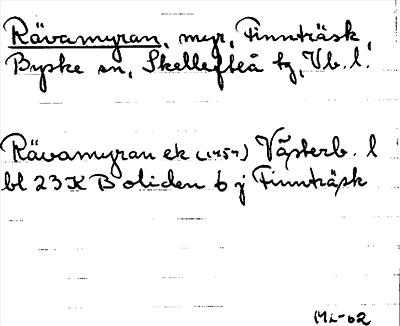 Rävamyran, myr, Finnträsk,
Byske sn, Skellefteå tg, Vb. l.
Rävamyran ek (1959) Västerb. l
bl 23 K Boliden 6 j Finnträsk
ML-62